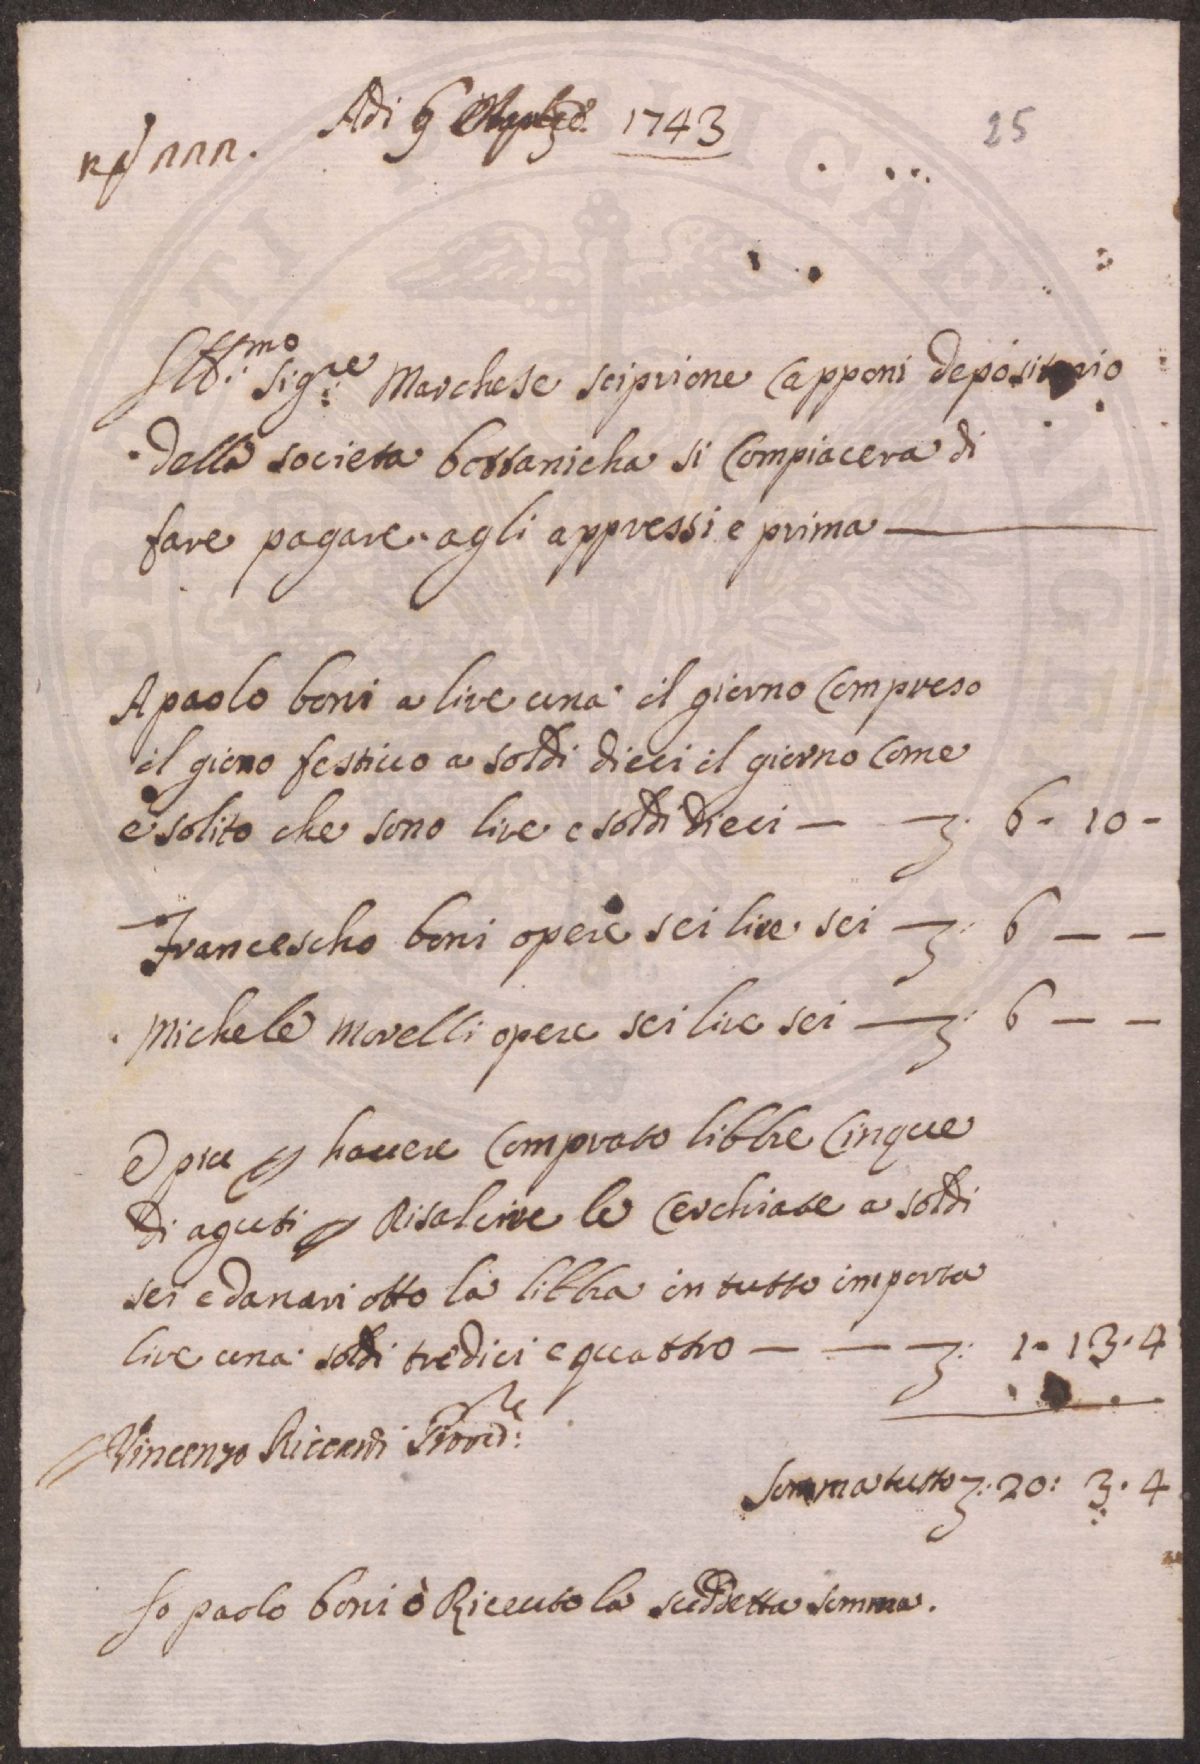 Adi 9 1743
25
Ill.mo Sig.re Marchese sciprione Capponi depositario
della societa bottanicha si Compiacera di
fare pagare agli appressi e prima
A paolo boni a lire una il giorno Compreso
il giorno festiuo a soldi dieci il giorno Come
e solito che sono lire e soldi dieci — — 6 - 10 -
Francescho boni opere sei lire sei — 6 — —
Michele Morelli opere sei lire sei — 6 — —
E piu hauere Comprato libbre Cinque
di aguti Risalire le Cerchiate a soldi
sei e danari otto la libbra in tutto importa
lire una soldi tredici e quattro — — 1 - 13 . 4
Vincenzo Riccardi Provd.re
Somma tutto 20 : 3 . 4
Io paolo boni ò Riceuto la suddetta somma .